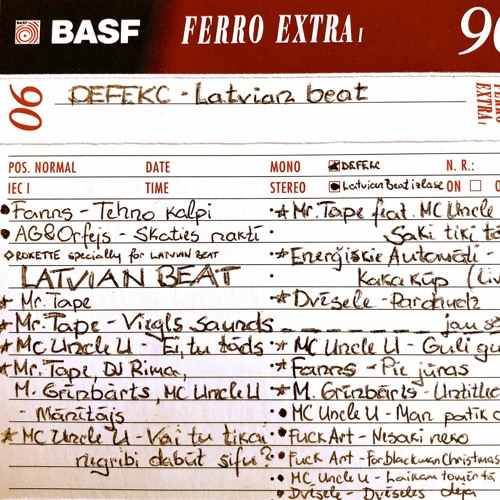 BASF
FERRO EXTRA I
90
90
DEFEKC - Latvian beat
FERRO EXTRA I
POS. NORMAL DATE MONO ★ DEFEKC N. R.:
IEC I TIME STEREO ● Latvian Beat izlase ON
• Fanns - Tehno kalpi
• AG&Orfejs - Skaties naktī
◇ ROKETTE specially for LATVIAN BEAT
LATVIAN BEAT
★ Mr. Tape
★ Mr. Tape - Virgls saunds
★ MC Uncle U - Ei, tu tāds
★ Mr. Tape, DJ Rima,
M. Grīnbārts, MC Uncle U
- Mānītājs
★ MC Uncle U - Vai tu tikai
negribi dabūt sifu?
★ Mr. Tape feat. MC Uncle
Saki tiki tā
★ Enerģiskie Automāti -
Kaka kūp (Liv
★ Dvīsele - Pardrudz
jau s
★ MC Uncle U - Guli gu
★ Fanns - Pie jūras
★ M. Grīnbārts - Untitled
• MC Uncle U - Man patīk
• Fuck Art - Nesaki neko
• Fuck Art - For blackman Christmas
• MC Uncle U - Laikam tomēr tā
Dvīsele - Dvīseles deja